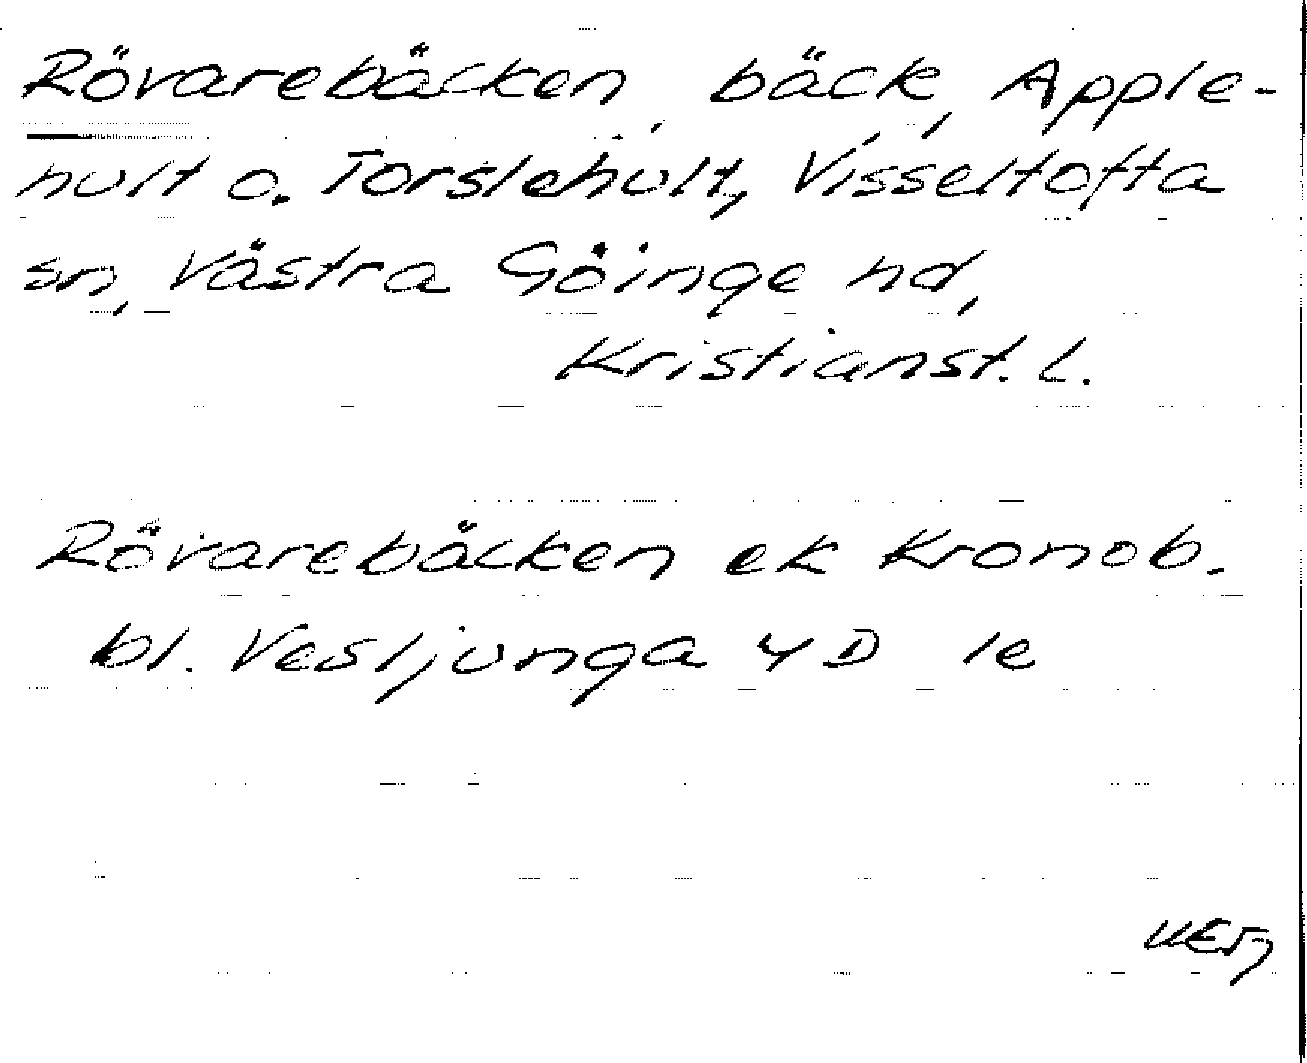 Rövarebäcken, bäck, Apple-
hult o. Torslehult, Visseltofta
sn, Västra Göinge hd,
Kristianst. l.
Rövarebäcken ek Kronob.
bl. Vesljunga 4D le